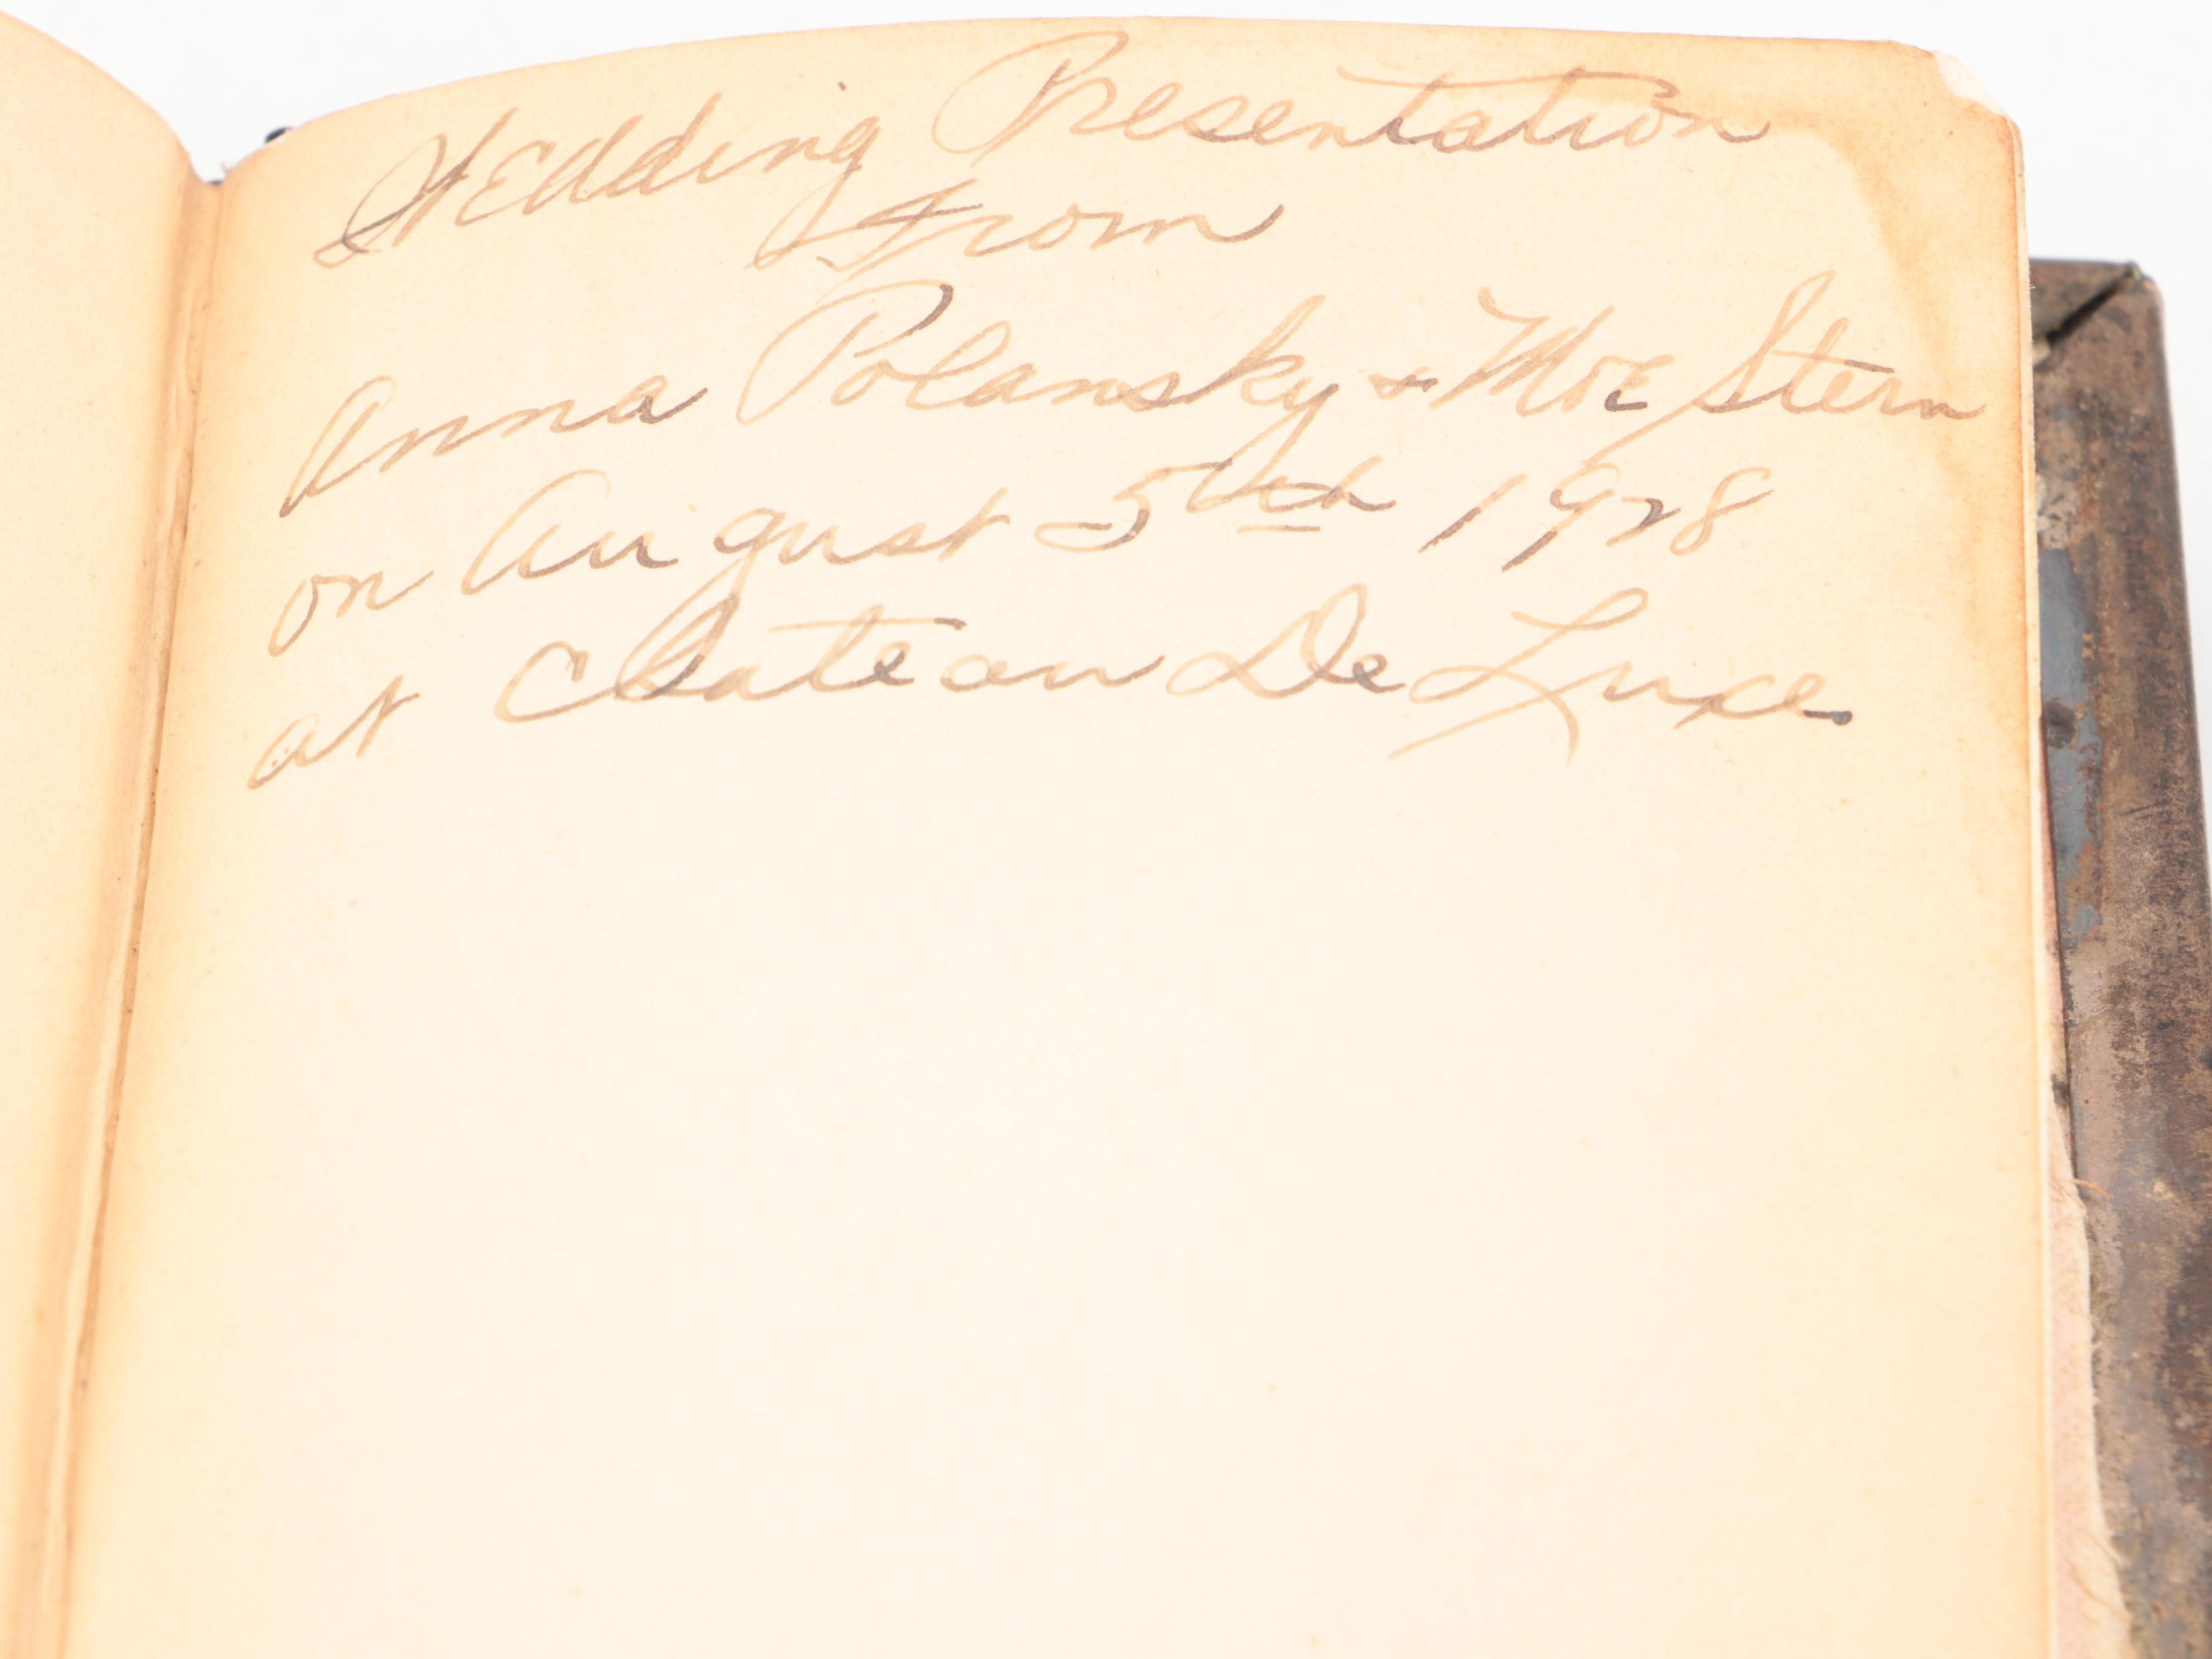 Wedding Presentation
From
Anna Polansky & Moe Stern
on August 5th 1928
at Chateau De Luxe.